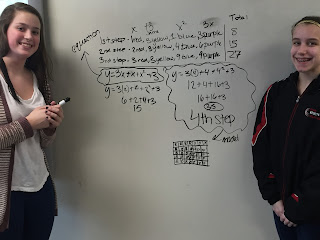 equation
x x+3 x² 3x Total
1st step - 1 red, 3 yellow, 1 blue, 3 purple 8
2nd step - 2 red, 3 yellow, 4 blue, 6 purple 15
3rd step - 3 red, 3 yellow, 9 blue, 9 purple 27
y=3x+x+x²+3
y=3(2)+2+2²+3
6+2+4+3
15
y=3(4)+4+4²+3
12+4+16+3
16+16+3
35
4th step
model